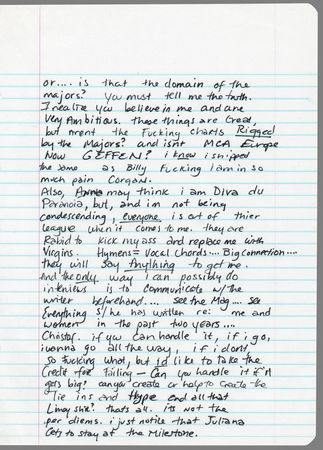 or.... is that the domain of the
majors? You must tell me the truth.
I realize you believe in me and are
Very Ambitious. these things are Great,
but arent the Fucking charts Rigged
by the Majors? and isnt MCA Europe
Now GEFFEN? i know i shipped
the same as Billy Fucking i am in so
much pain Corgan.
Also, may think i am Diva du
Paranoia, but, and im not being
condescending, everyone is out of thier
league when it comes to me. they are
Rabid to kick my ass and replace me with
Virgins. Hymens = Vocal Chords.... Big connection....
they will say Anything to get me.
And the only way i can possibly do
interviews is to communicate w/ the
writer beforehand.... see the Mag.... see
Everything s/he has written re: me and
women in the past two years....
Christof. if you can handle it, if i go,
i wanna go all the way, if i dont,
so fucking what, but id like to take the
Credit for failing — Can you handle it if it
gets big? can you create or help to create the
Tie ins and Hype and all that
shit? thats all. its not the
per diems. i just notice that Juliana
Gets to stay at the Milestone.